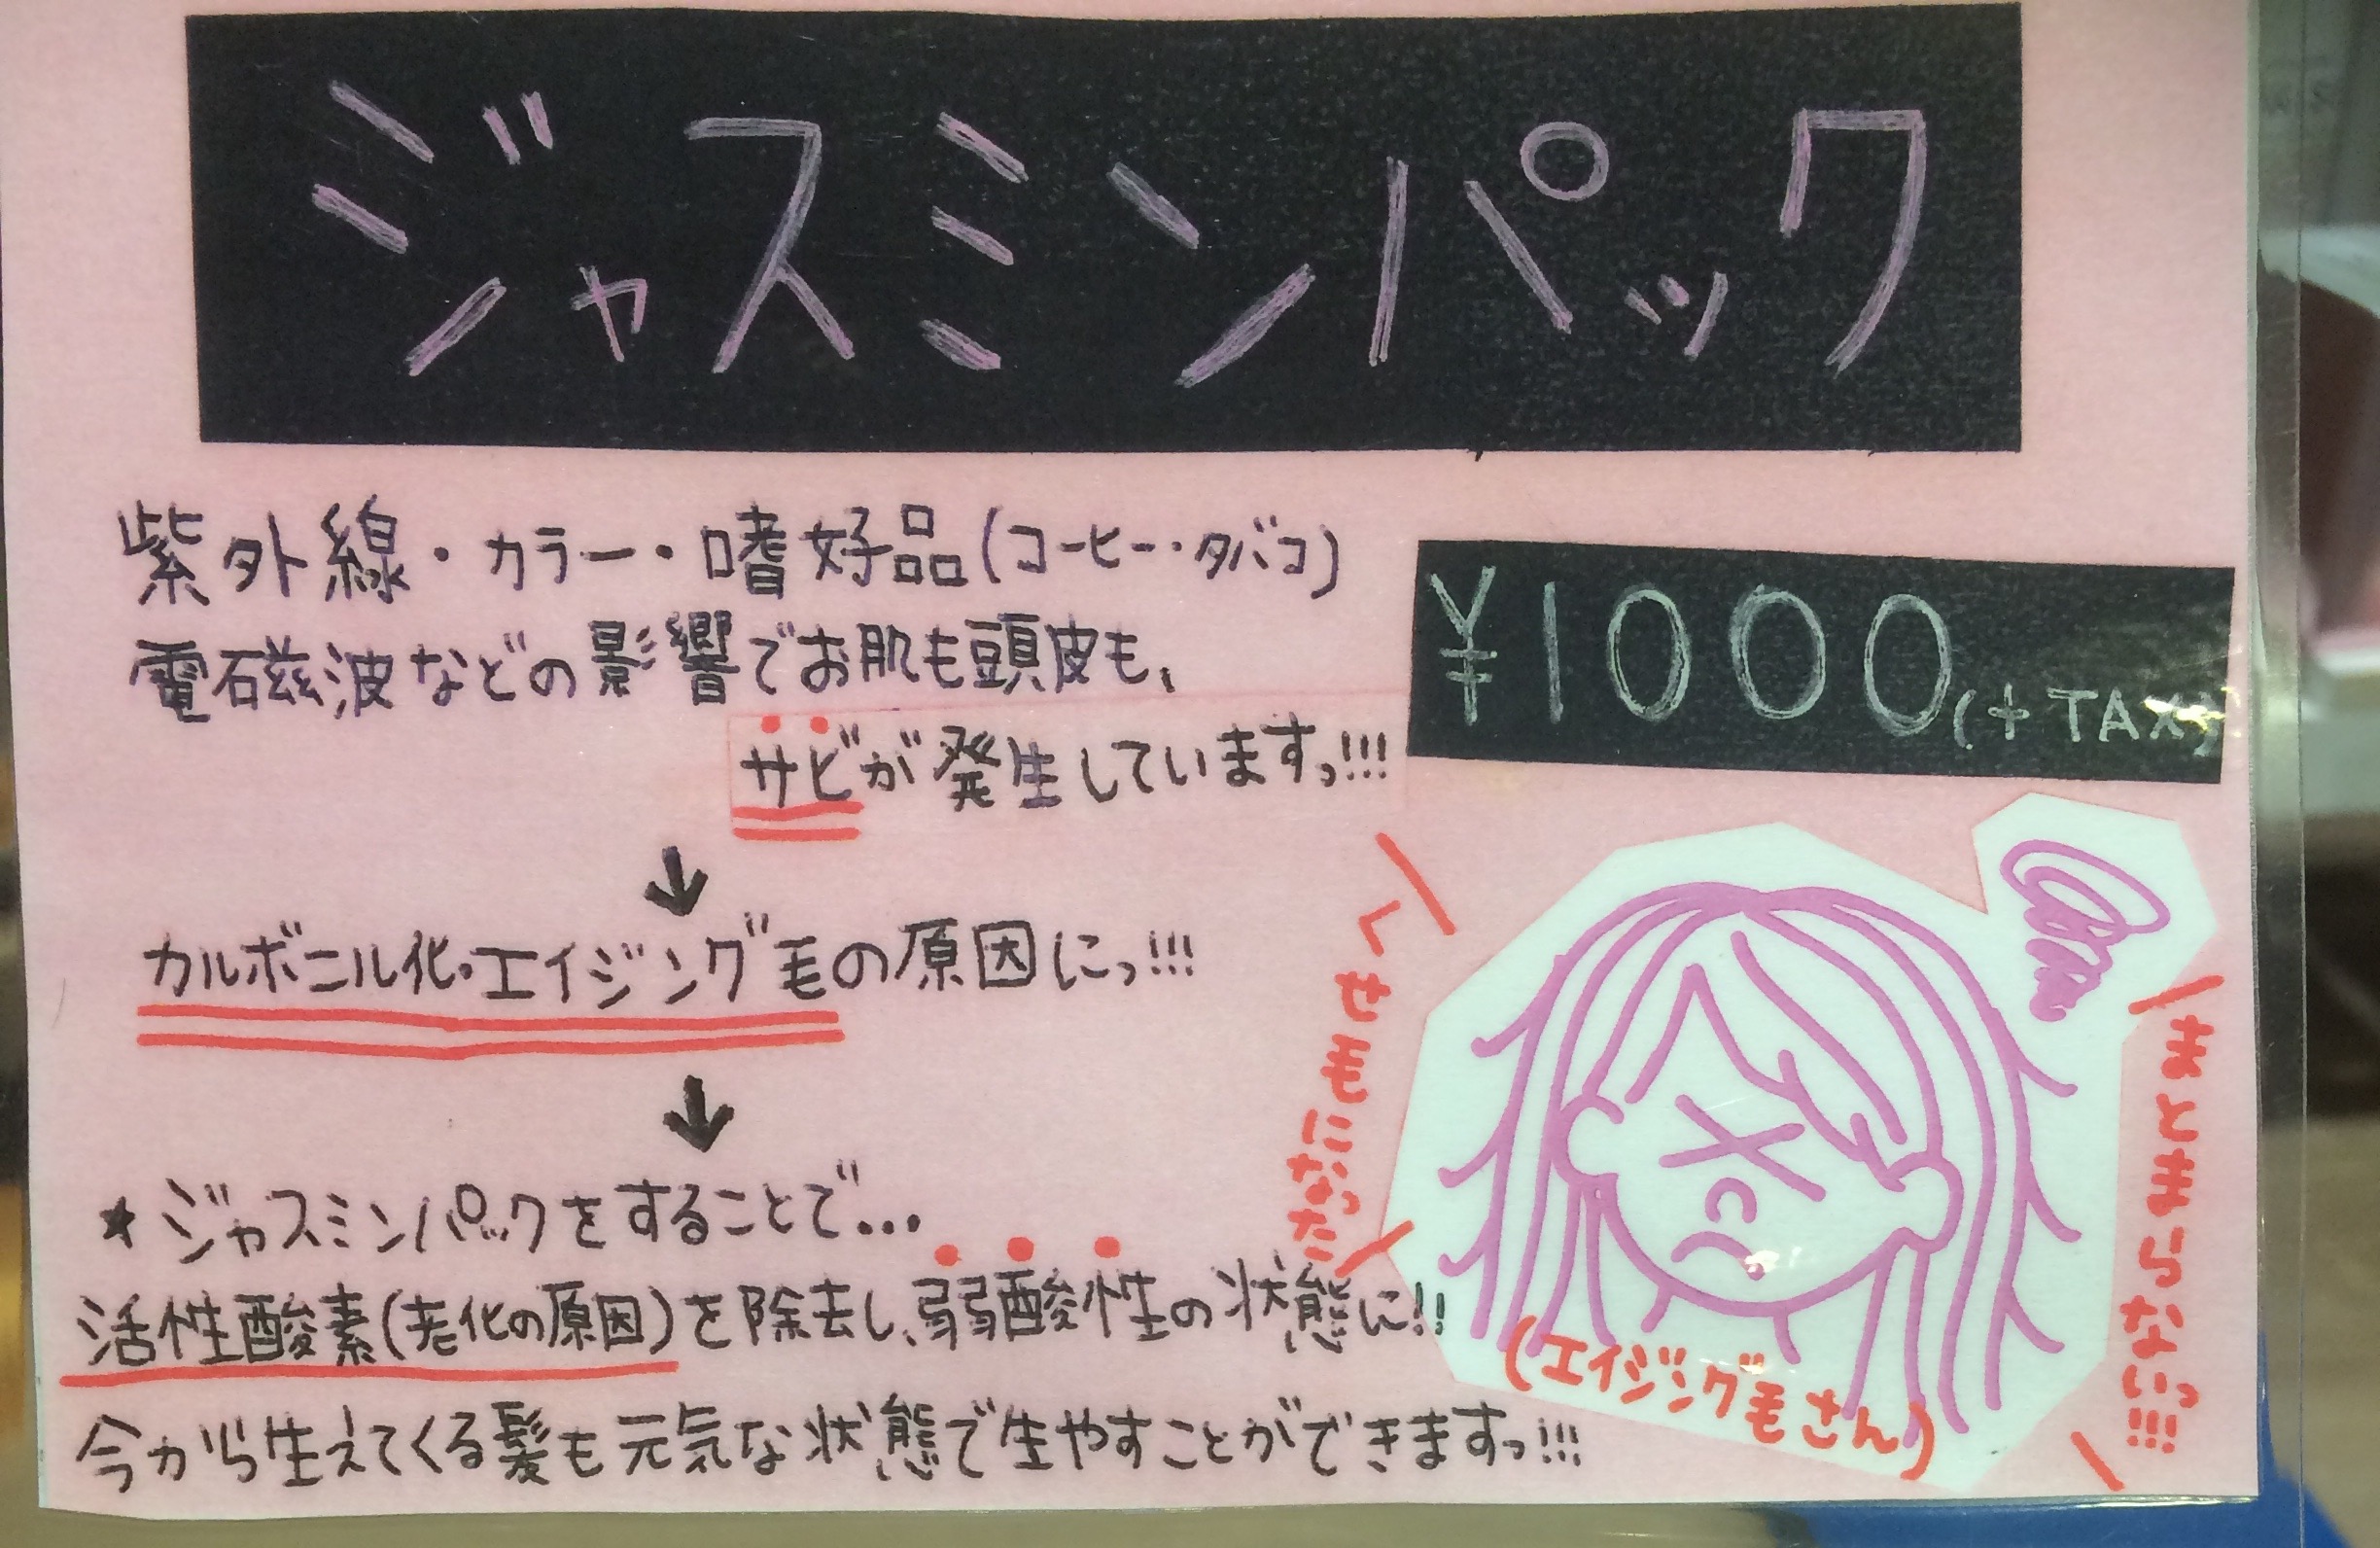 ジャスミンパック
紫外線・カラー・嗜好品(コーヒー・タバコ)
電磁波などの影響でお肌も頭皮も、
サビが発生していますっ!!!
¥1000(+TAX)
↓
カルボニル化・エイジング毛の原因にっ!!!
↓
★ジャスミンパックをすることで...
活性酸素(老化の原因)を除去し、弱酸性の状態に!!
今から生えてくる髪も元気な状態で生やすことができますっ!!!
くせ毛になった
まとまらないっ!!!
(エイジング毛さん)